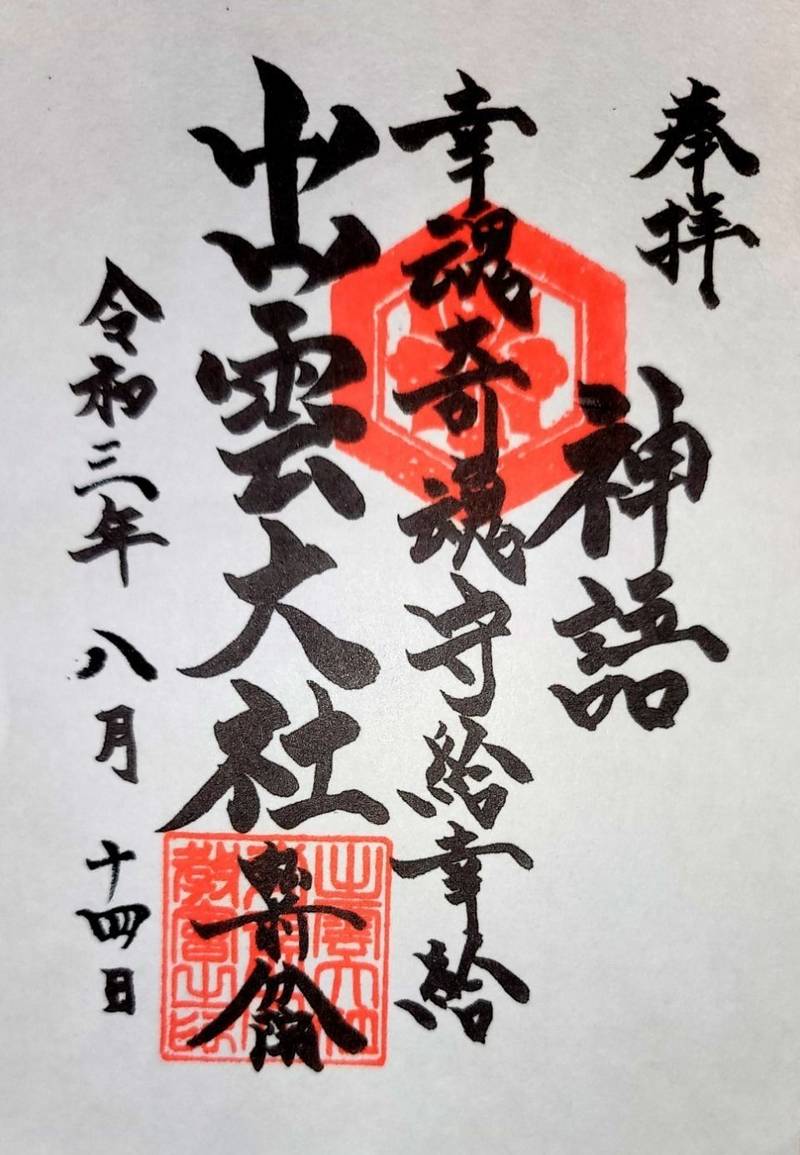 奉拝
神語
幸魂奇魂守給幸給
出雲大社
令和三年八月十四日
出雲大社
教會之印